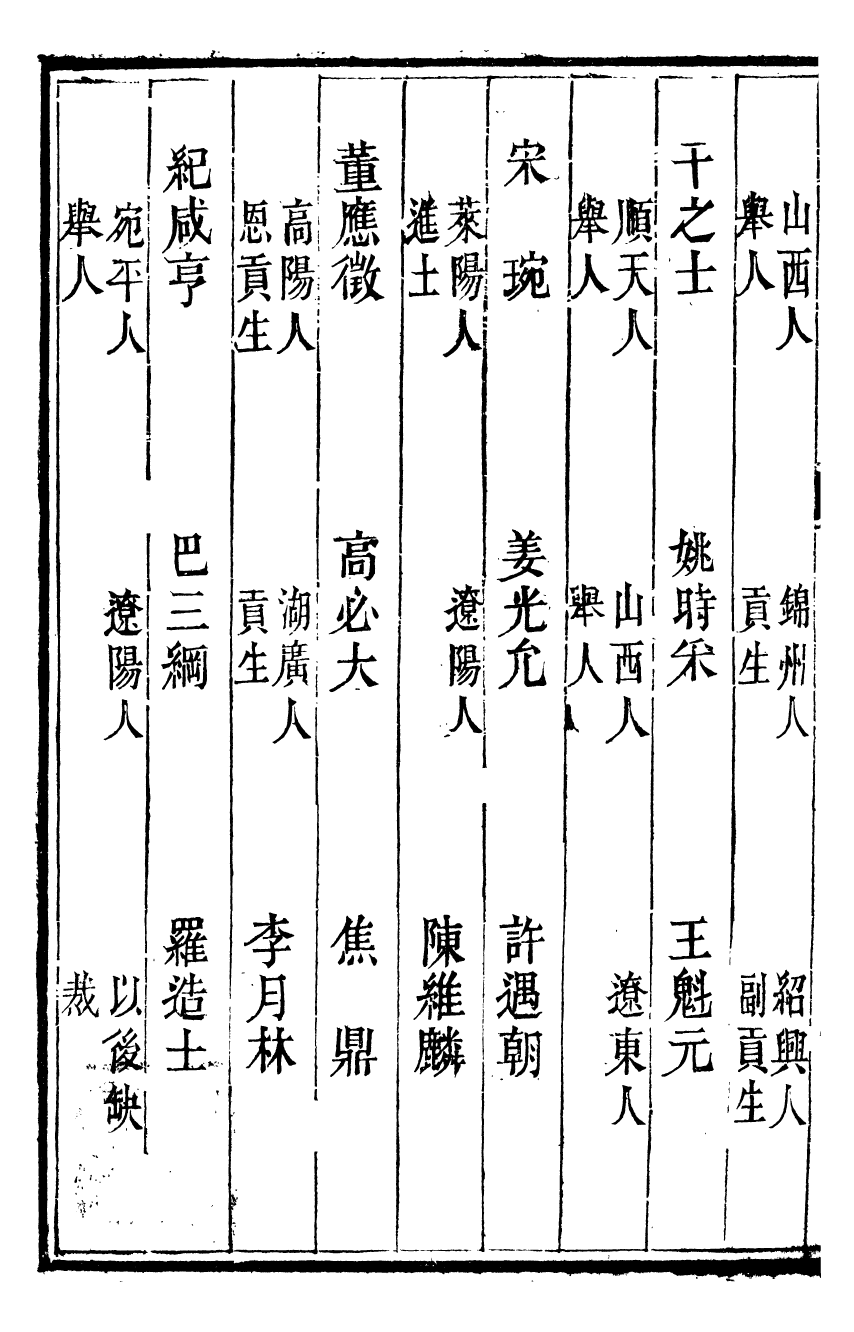 山西人
舉人
錦州人
貢生
紹興人
副貢生
干之士
姚時采
王魁元
順天人
舉人
山西人
舉人
遼東人
宋琬
姜光允
許遇朝
萊陽人
進士
遼陽人
陳維麟
董應徵
高必大
焦鼎
高陽人
恩貢生
湖廣人
貢生
李月林
紀咸亨
巴三綱
羅造士
宛平人
舉人
遼陽人
以後缺
裁